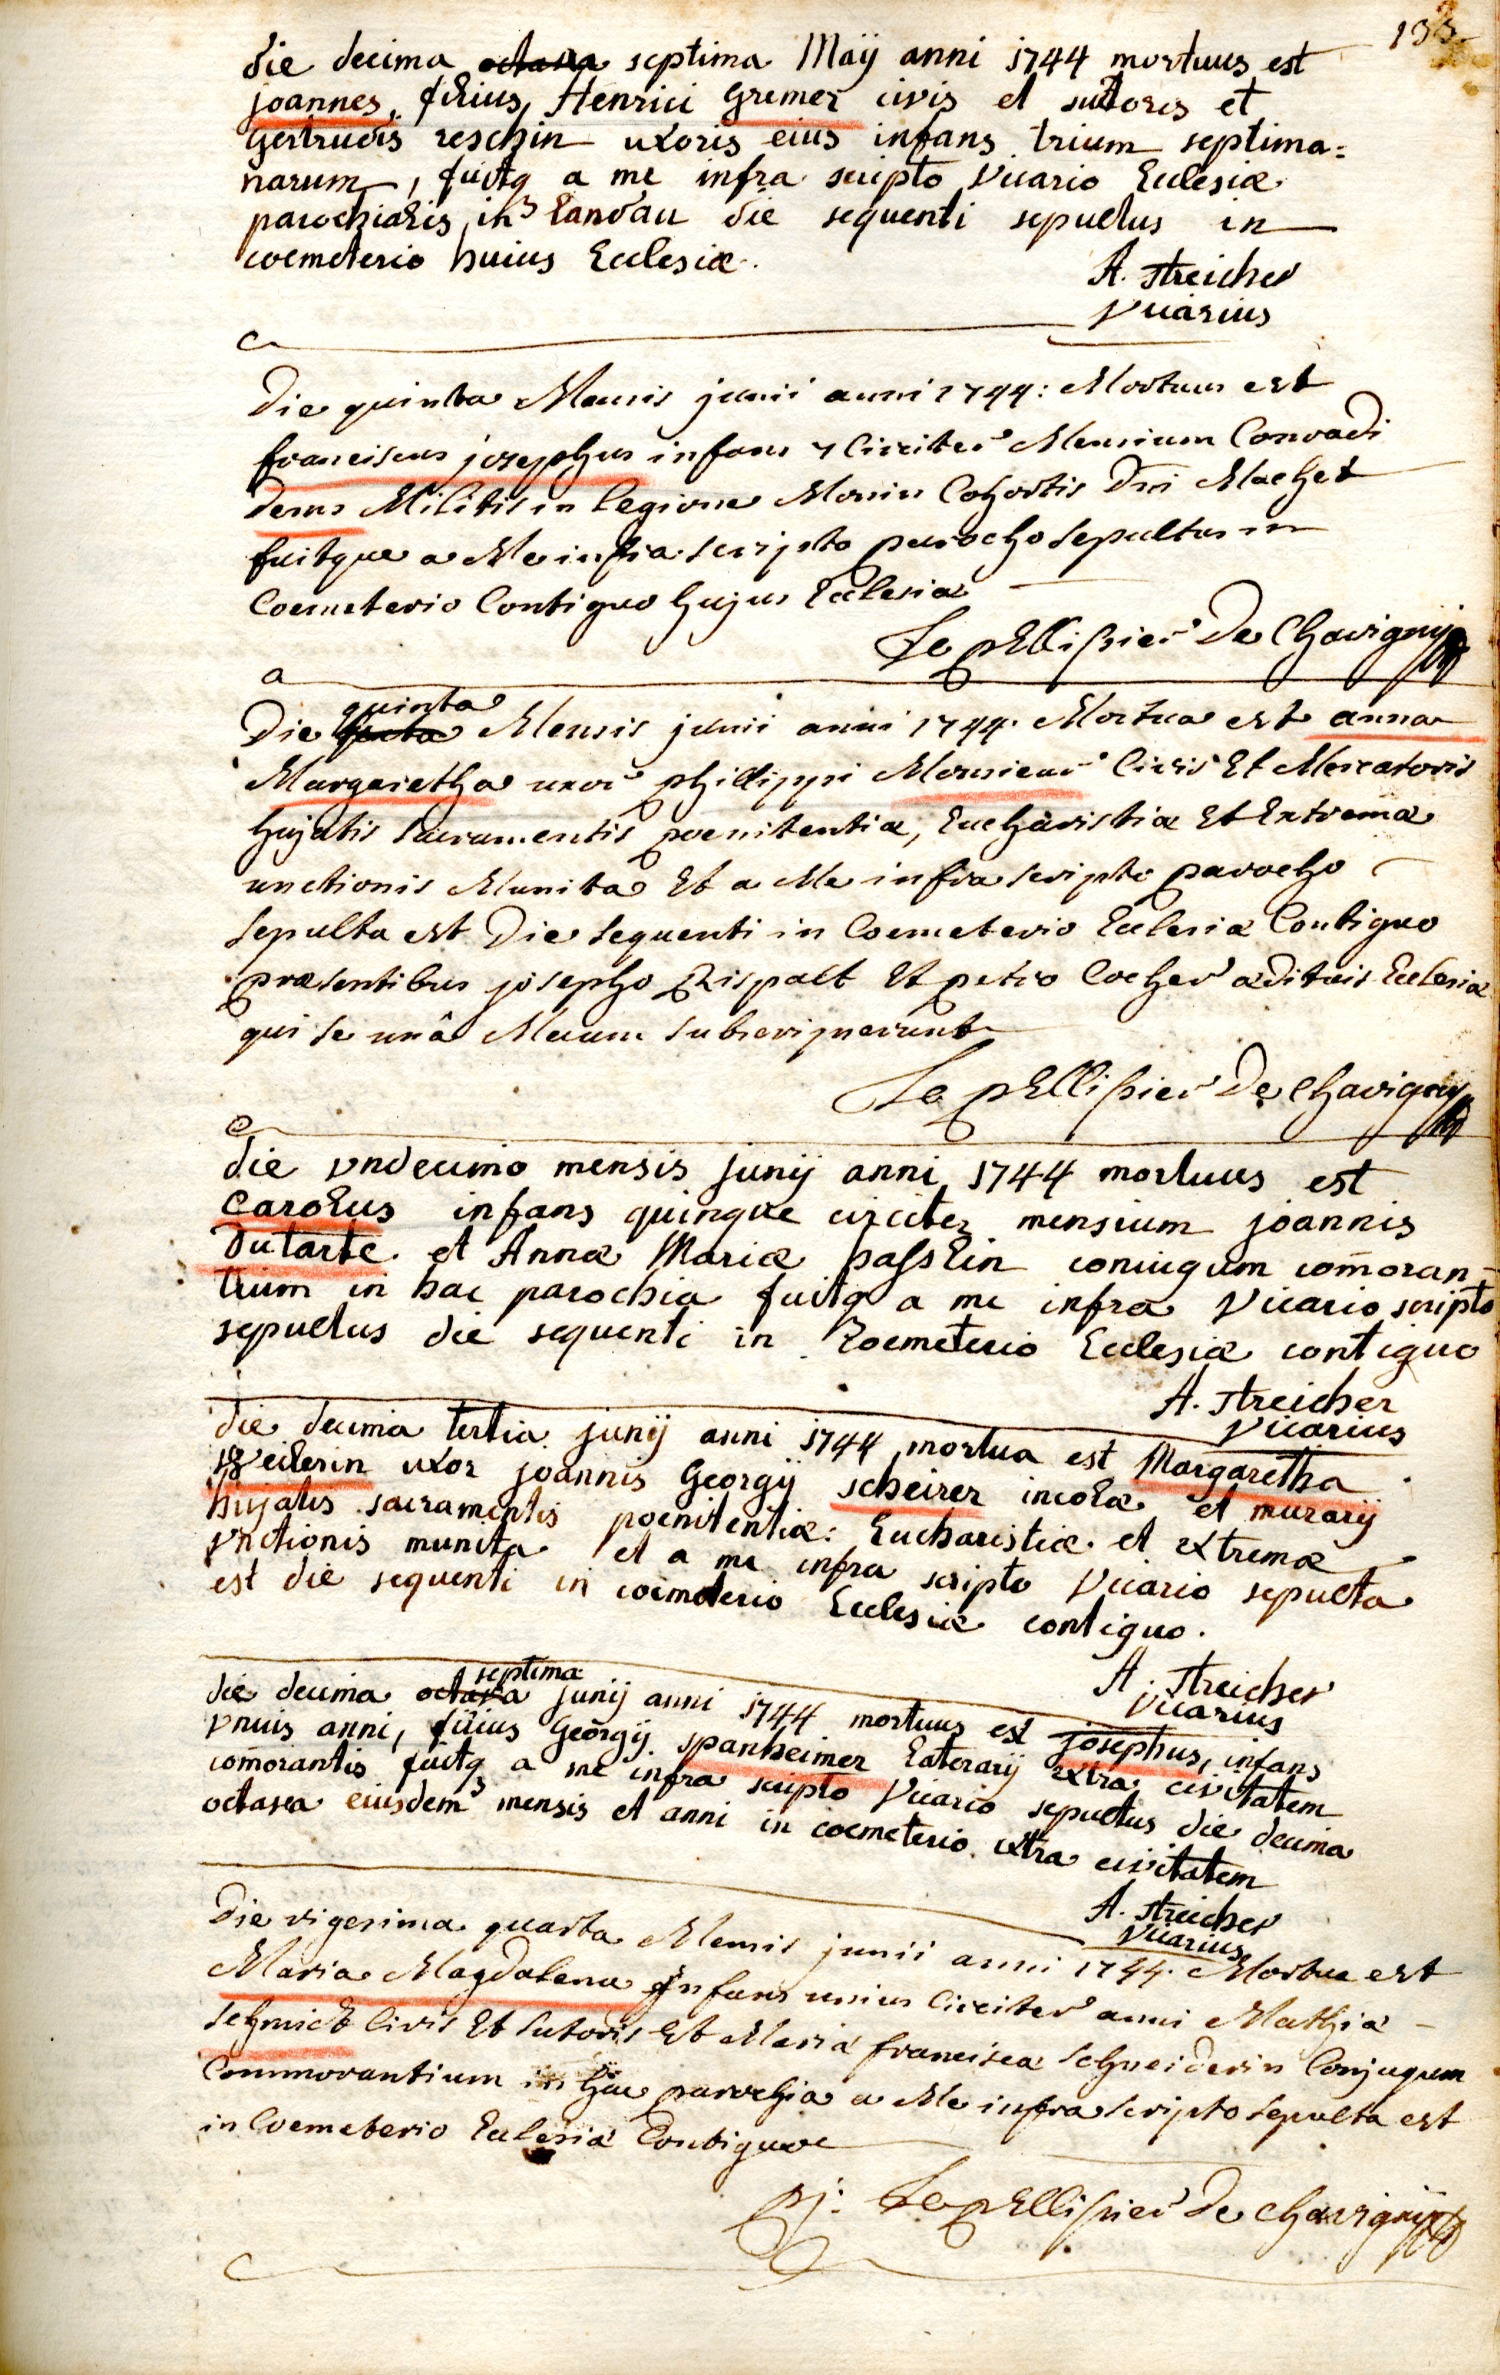 133
die decima octava septima Maÿ anni 1744 mortuus est
joannes, filius Henrici Gremer civis et sutoris et
Gertrudis reschin uxoris eius infans trium septima=
narum, fuitq a me infra scripto Vicario Ecclesiæ
parochialis in Landau die sequenti sepultus in
coemeterio huius Ecclesiæ.
A. Streicher
Vicarius
Die quinta Mensis junii anni 1744: Mortuus est
franciscus josephus infans 7 Circiter Mensium Conradi
Militis in legione Monin Cohortis Dni Machet
fuitque a Me infra scripto parocho sepultus in
Coemeterio Contiguo hujus Ecclesiæ
Le pEllißier De Chavigny
quinta
Die sexta Mensis junii anni 1744. Mortua est anna
Margaretha uxor phillippi Monsieur Civis Et Mercatoris
hujatis sacramentis poenitentiæ, Eucharistiæ Et Extremæ
unctionis Munita Et a Me infra scripto parocho
sepulta est Die sequenti in Coemeterio Ecclesiæ Contiguo
præsentibus josepho Rispalt Et petro Cocher ædituis Ecclesiæ
qui se unâ Mecum subscripserunt
Le pEllißier De Chavigny
die vndecimo mensis junÿ anni 1744 mortuus est
Carolus infans quinque circiter mensium joannis
Dutarte et Annæ Mariæ passlin coniugum com̄oran-
tium in hac parochia fuitq a me infra Vicario scripto
sepultus die sequenti in Coemeterio Ecclesiæ contiguo
A. Streicher
Vicarius
die decima tertia junÿ anni 1744 mortua est Margaretha
Weilerin uxor joannis Georgÿ scheirer incolæ et murarÿ
hujatis sacramentis poenitentiæ: Eucharistiæ et extremæ
vnctionis munita et a me infra scripto Vicario sepulta
est die sequenti in coemeterio Ecclesiæ contiguo.
A. Streicher
Vicarius
septima
die decima octava junÿ anni 1744 mortuus est josephus, infans
vnuis anni, filius Georgÿ spanheimer Laterarÿ extra civitatem
com̄orantis fuitq a me infra scripto Vicario sepultus die decima
octava eiusdem mensis et anni in coemeterio extra civitatem
A. Streicher
Vicarius
Die vigesima quarta Mensis junii anni 1744. Mortua est
Maria Magdalena Infans unius Circiter anni Mathiæ
schmidt Civis Et sutoris Et Mariæ franciscæ schneiderin Conjugum
Commorantium in hac parochia a Me infra scripto sepulta est
in Coemeterio Ecclesiæ Contiguo
pj. Le pEllißier De Chavigny